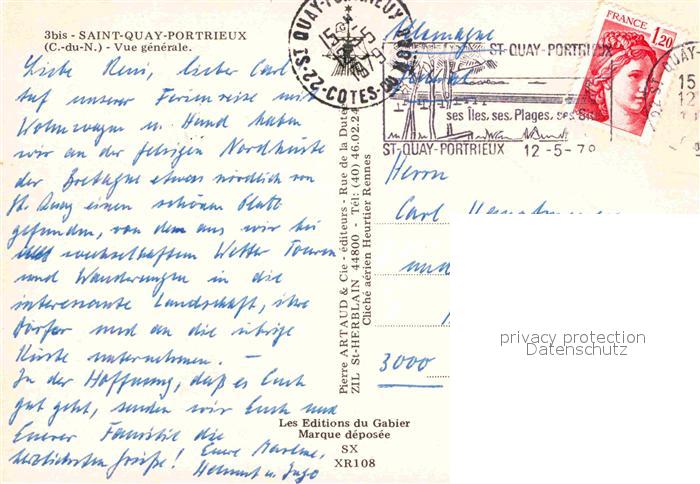 3bis - SAINT-QUAY-PORTRIEUX
(C.-du-N.) - Vue générale.
Liebe Reni, lieber Carl
Auf unserer Ferienreise mit
Wohnwagen u. Hund haben
wir an der felsigen Nordküste
der Bretagne etwas nördlich von
St. Quay einen schönen Platz
gefunden, von dem aus wir bei
wechselhaftem Wetter Touren
und Wanderungen in die
interessante Landschaft, ihre
Dörfer und an die übrige
Küste unternehmen. –
In der Hoffnung, daß es Euch
gut geht, senden wir Euch und
Eurer Familie die
herzlichsten Grüße! Eure Marlene,
Helmut u. Ingo
Pierre ARTAUD & Cie - éditeurs - Rue de la Dute
ZIL St-HERBLAIN 44800 - Tél: (40) 46.02.24
Cliché aérien Heurtier Rennes
Les Editions du Gabier
Marque déposée
SX
XR108
22-ST QUAY-PORTRIEUX
COTES-DU-NORD
ST-QUAY-PORTRIEUX
ses Îles, ses Plages, ses
ST-QUAY-PORTRIEUX 12-5-79
FRANCE
1,20
Allemagne
Herrn
Carl
und
3000
privacy protection
Datenschutz